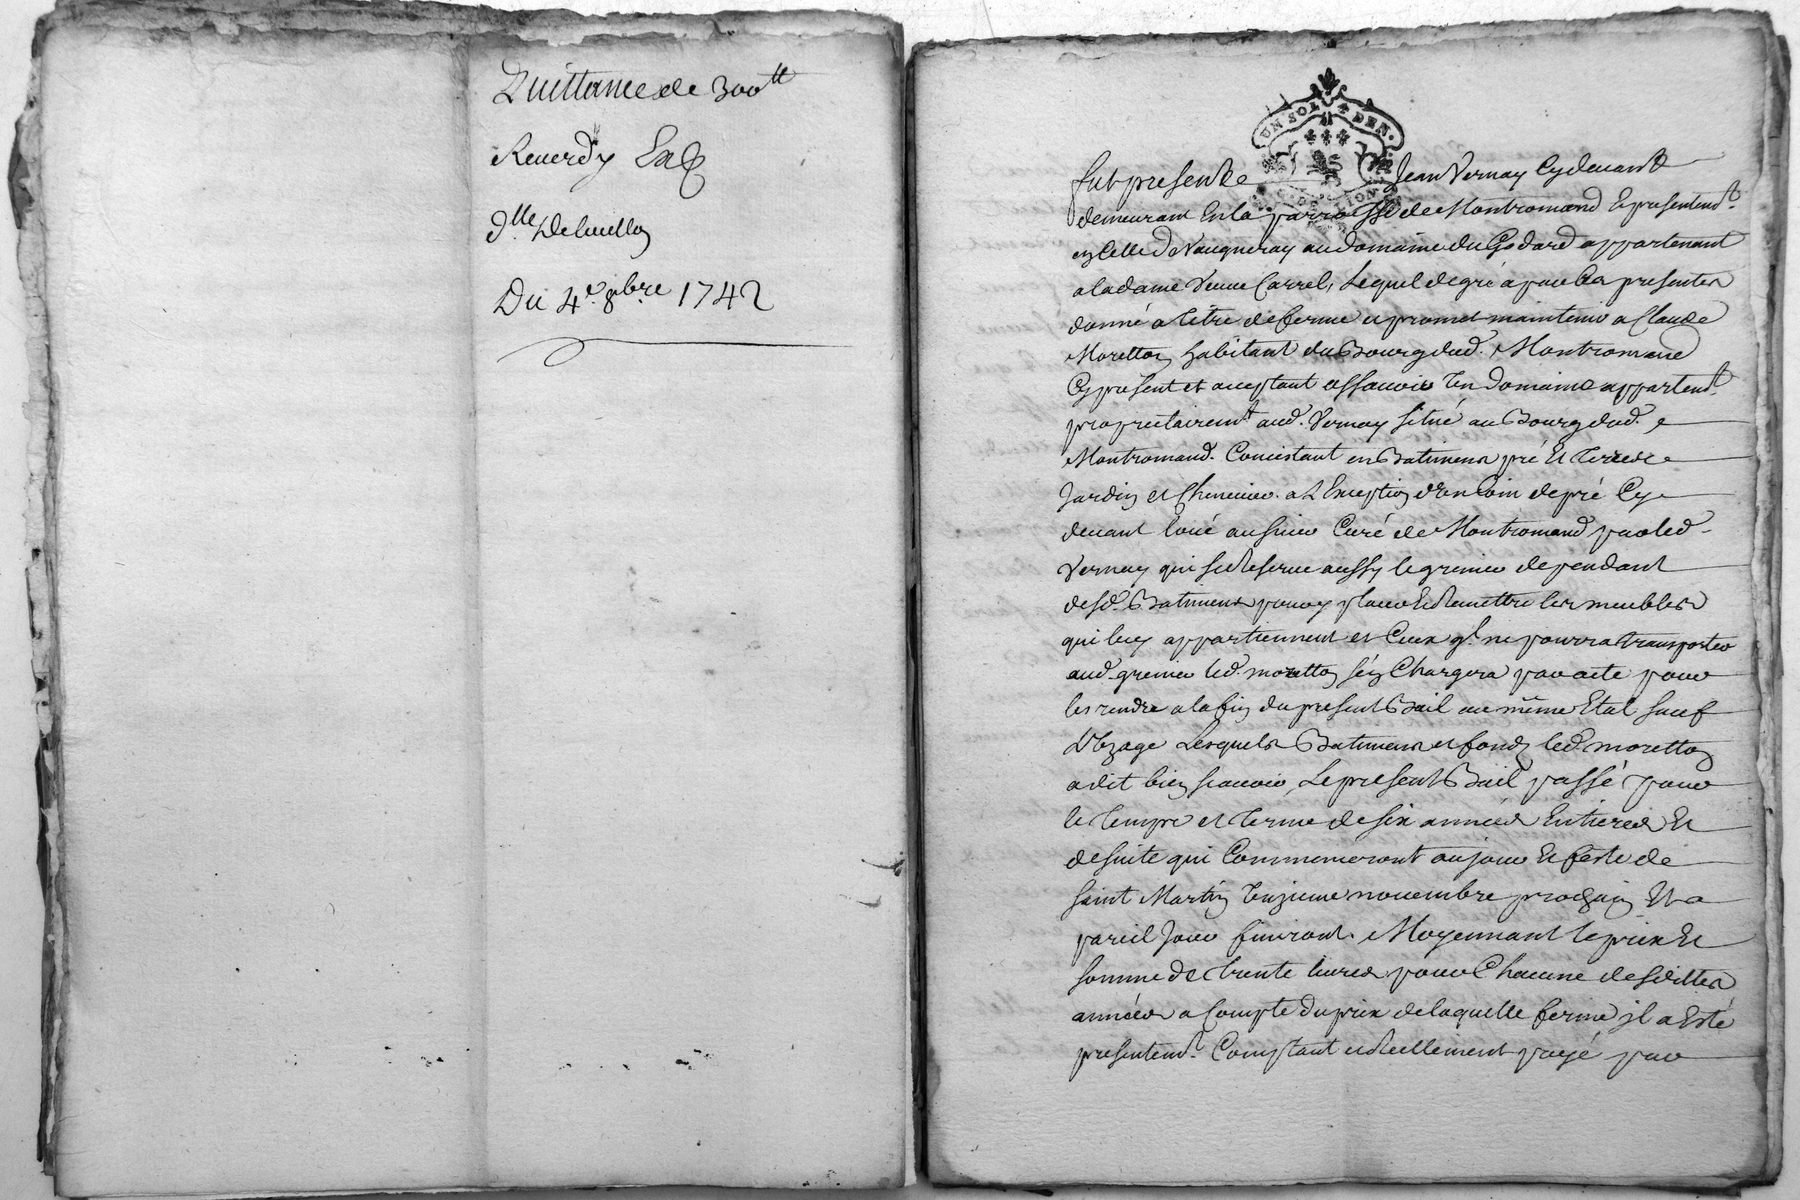 Quittance de 300ᵗᵗ
Reverdy
Dlle
Du 4e. 8bre 1742
UN SOL 4 DEN.
fut presente Jean Vernay Cydevant
demeurant En la parroisse de Montromand Et presentemt.
en Celle de Vaugneray au domaine du Godard appartenant
a la dame Veuve Carrel, Lequel de gré a par ces presentes
donné a titre de ferme et promet maintenir a Claude
Moretton habitant du Bourg dud. Montromand
Cy present et acceptant assavoir Un domaine appartent.
proprietairemt. aud. Vernay situé au Bourg dud.
Montromand. Concistant en Batimens pré Et terres
Jardin et Chenevier a L'Exception d'en Coin de pré Cy
devant loué au sieur Curé de Montromand par led.
Vernay qui se Reserve aussy le grenier dependant
desd. Batimens pour y placer Et Remettre les meubles
qui luy appartiennent et Ceux ql. ne pourra transporter
aud. grenier led. moretton s'en Chargera par acte pour
les rendre a la fin du present Bail au même Etat sauf
L'Uzage Lesquels Batimens et fonds led. moretton
a dit bien scavoir, Le present Bail passé pour
le temps et terme de six années Entieres Et
de suite qui Commenceront au jour Et feste de
saint Martin Unzieme novembre prochain Et a
pareil Jour finiront. Moyennant le prix Et
somme de trente livres pour Chacune desdittes
années a Compte du prix de laquelle ferme jl a Esté
presentemt. Comptant et Reellement payé par